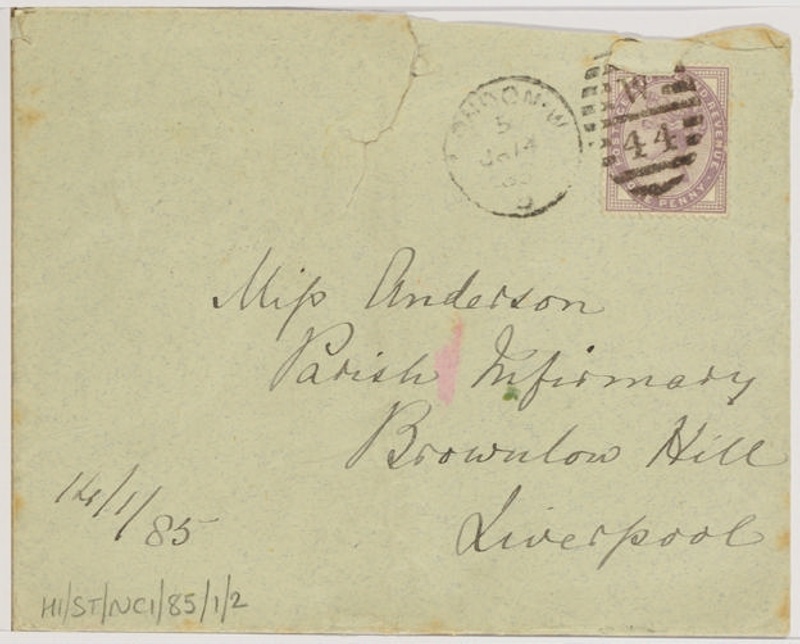 LONDON·W
5
JA 14
85
W
44
POSTAGE AND INLAND REVENUE
ONE PENNY
Miss Anderson
Parish Infirmary
Brownlow Hill
Liverpool
14/1/85
H1/ST/NC1/85/1/2